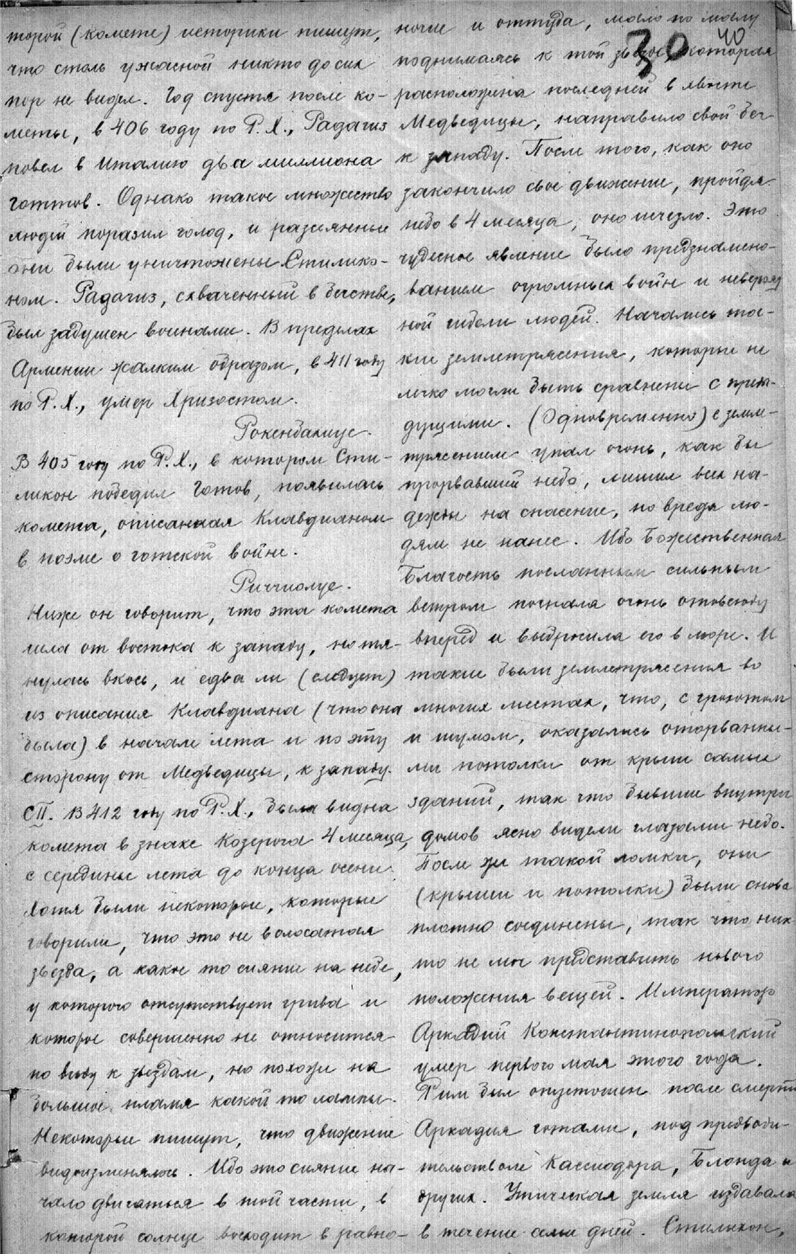 торой (комете) историки пишут,
что столь ужасной никто до сих
пор не видел. Год спустя после ко-
меты, в 406 году по Р.Х., Радагиз
повел в Италию два миллиона
готтов. Однако такое множество
людей поразил голод, и рассеянные
они были уничтожены Стилико-
ном. Радагиз, схваченный в бегстве,
был задушен воинами. В пределах
Армении жалким образом, в 411 году
по Р.Х., умер Хризостом.
Рокенбахиус.
В 405 году по Р.Х., в котором Сти-
ликон победил Готов, появилась
комета, описанная Клавдианом
в поэме о готской войне.
Риччиолус.
Ниже он говорит, что эта комета
шла от востока к западу, но тя-
нулась вкось, и едва ли (следует)
из описания Клавдиана (что она
была) в начале лета и по эту
сторону от Медведицы, к западу.
СII. В 412 году по Р.Х., была видна
комета в знаке Козерога 4 месяца,
с середины лета до конца осени.
Хотя были некоторые, которые
говорили, что это не волосатая
звезда, а какое то сияние на небе,
у которого отсутствует грива и
которое совершенно не относится
по виду к звездам, но похоже на
большое пламя какой то лампы.
Некоторые пишут, что движение
видоизменялось. Ибо это сияние на-
чало двигаться в той части, в
которой солнце восходит в равно-
30 40
ночие и оттуда, мало по малу
поднимаясь к той звезде, которая
расположена последней в хвосте
Медведицы, направило свой бег
к западу. После того, как оно
закончило свое движение, пройдя
небо в 4 месяца, оно исчезло. Это
чудесное явление было предзнамено-
ванием огромных войн и невероят
ной гибели людей. Начались та-
кие землетрясения, которые не
легко могли быть сравнены с преды-
дущими. (Одновременно) с земле-
трясением упал огонь, как бы
прорвавший небо, лишил всех на-
дежды на спасение, но вреда лю-
дям не нанес. Ибо Божественная
Благость посланным сильным
ветром погнала огонь отовсюду
вперед и выбросила его в море. И
такие были землетрясения во
многих местах, что, с грохотом
и шумом, оказались оторванны-
ми потолки от крыш самых
зданий, так что бывшие внутри
домов ясно видели глазами небо.
После же такой ломки, они
(крыши и потолки) были снова
плотно соединены, так что ник-
то не мог представить нового
положения вещей. Император
Аркадий Константинопольский
умер первого мая этого года.
Рим был опустошен после смерти
Аркадия готами, под предводи-
тельством Кассиодора, Блонда и
других. Утическая земля издавала
в течение семи дней. Стиликон,